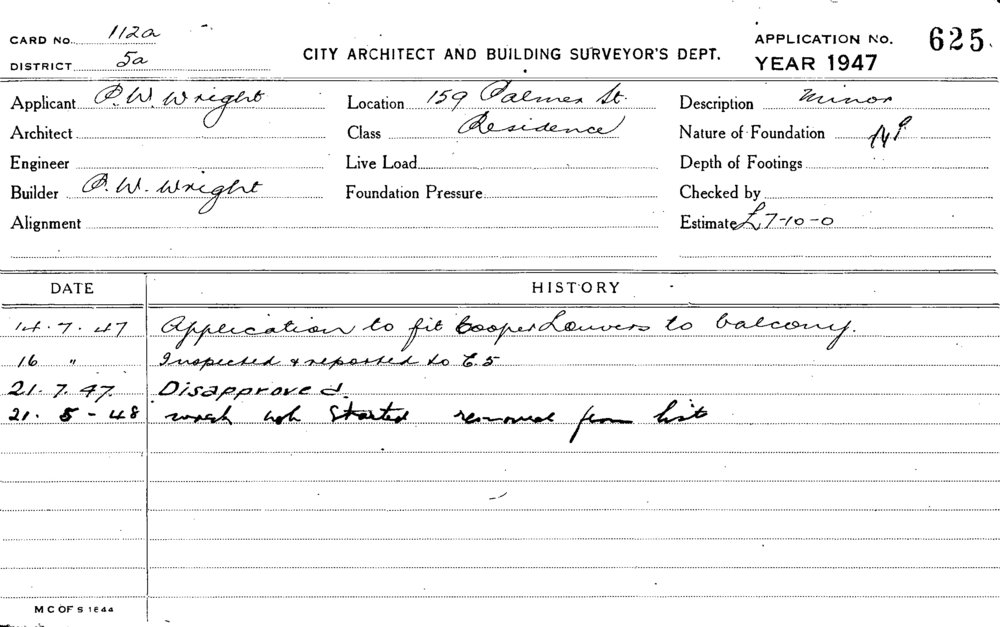 CARD No. 112a
DISTRICT 5a
CITY ARCHITECT AND BUILDING SURVEYOR'S DEPT.
APPLICATION NO. 625
YEAR 1947
Applicant P.W. Wright Location 159 Palmer St. Description Minor
Architect Class Residence Nature of Foundation
Engineer Live Load Depth of Footings
Builder P.W. Wright Foundation Pressure Checked by
Alignment Estimate £7-10-0
DATE HISTORY
14.7.47 Application to fit Cooper Louvers to balcony.
16 " Inspected & reported to E.5
21.7.47. Disapproved.
21.5-48 work not started removed from list
M C OF S 1644